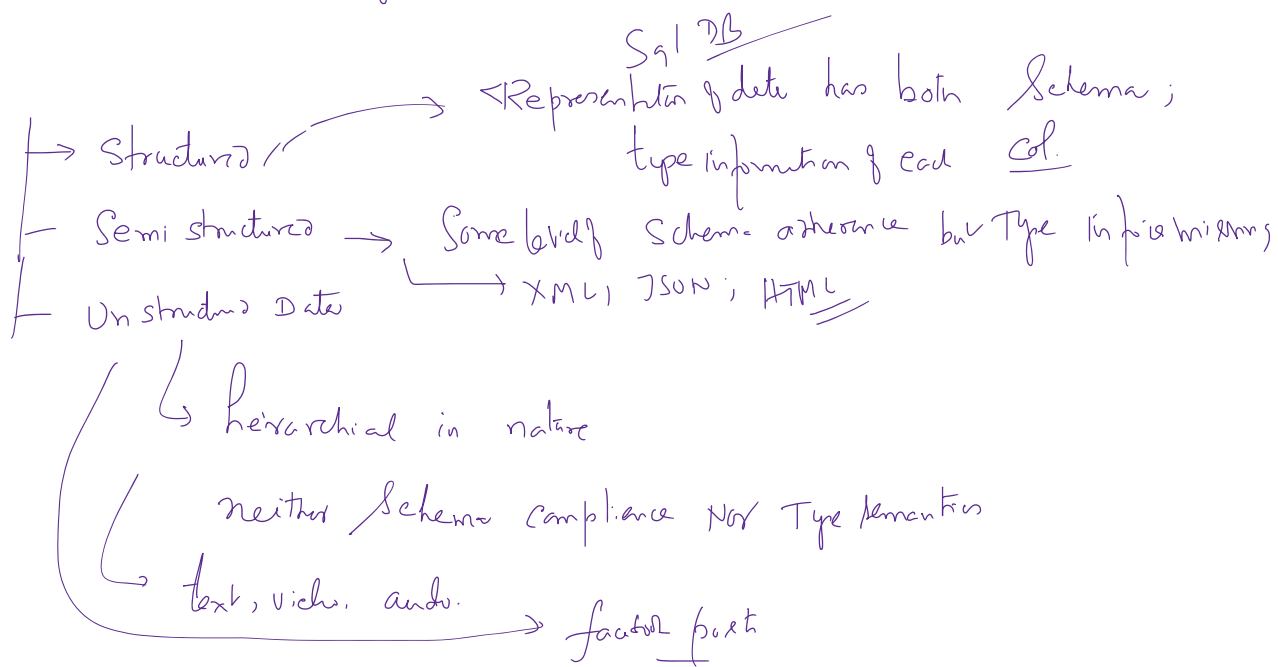 Sql DB
Representation of data has both Schema;
Structured
type information of each col.
Semi structured
Some level of Schema adherence but Type info is missing
XML, JSON; HTML
Unstructured Data
heirarchial in nature
neither Schema compliance Nor Type semantics
text, video, audio.
facebook post